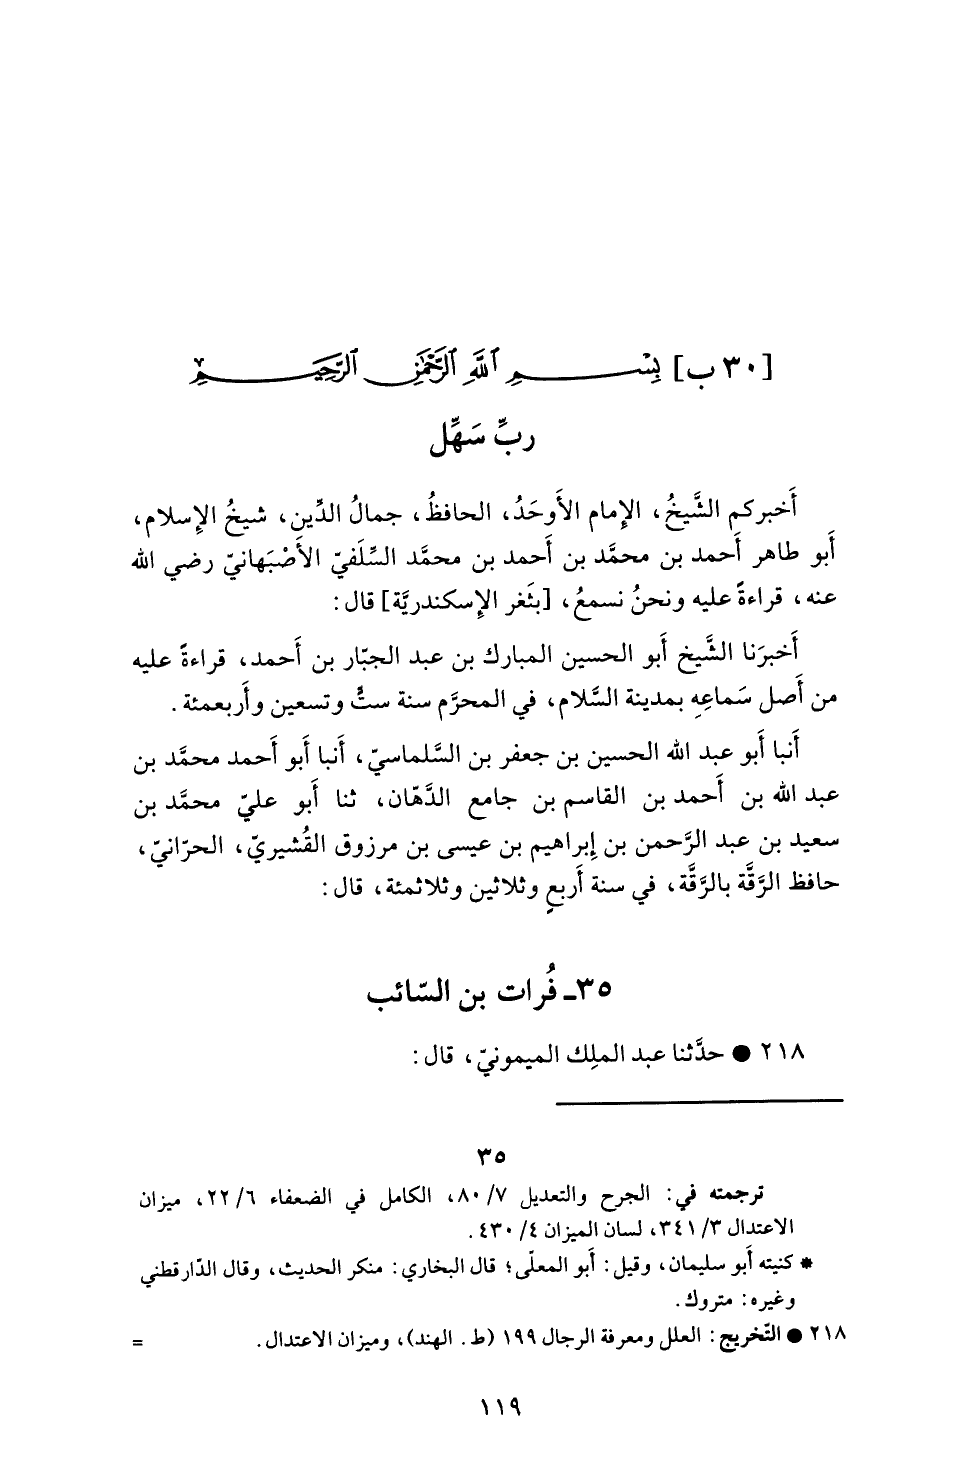 [٣٠ ب] بِسْمِ ٱللَّهِ ٱلرَّحْمَٰنِ ٱلرَّحِيمِ
ربِّ سَهِّل
أَخبركم الشَّيخُ، الإِمام الأَوحَدُ، الحافظُ، جمالُ الدِّين، شيخُ الإِسلام،
أَبو طاهر أَحمد بن محمَّد بن أَحمد بن محمَّد السِّلَفيّ الأَصْبَهانيّ رضي الله
عنه، قراءةً عليه ونحنُ نسمعُ، [بثَغر الإِسكندريَّة] قال:
أَخبرَنا الشَّيخ أَبو الحسين المبارك بن عبد الجبّار بن أَحمد، قراءةً عليه
من أَصل سَماعِهِ بمدينة السَّلام، في المحرَّم سنة ستٍّ وتسعين وأَربعمئة.
أَنبا أَبو عبد الله الحسين بن جعفر بن السَّلماسيّ، أَنبا أَبو أَحمد محمَّد بن
عبد الله بن أَحمد بن القاسم بن جامع الدَّهّان، ثنا أَبو عليّ محمَّد بن
سعيد بن عبد الرَّحمن بن إِبراهيم بن عيسى بن مرزوق القُشيريّ، الحرّانيّ،
حافظ الرَّقَّة بالرَّقَّة، في سنة أَربعٍ وثلاثين وثلاثمئة، قال:
٣٥ـ فُرات بن السّائب
٢١٨ ● حدَّثنا عبد الملِك الميمونيّ، قال:
٣٥
ترجمته في: الجرح والتعديل ٧/ ٨٠، الكامل في الضعفاء ٦/ ٢٢، ميزان
الاعتدال ٣/ ٣٤١، لسان الميزان ٤/ ٤٣٠.
* كنيته أَبو سليمان، وقيل: أَبو المعلّى؛ قال البخاري: منكر الحديث، وقال الدّارقطني
وغيره: متروك.
٢١٨ ● التّخريج: العلل ومعرفة الرجال ١٩٩ (ط. الهند)، وميزان الاعتدال. =
١١٩